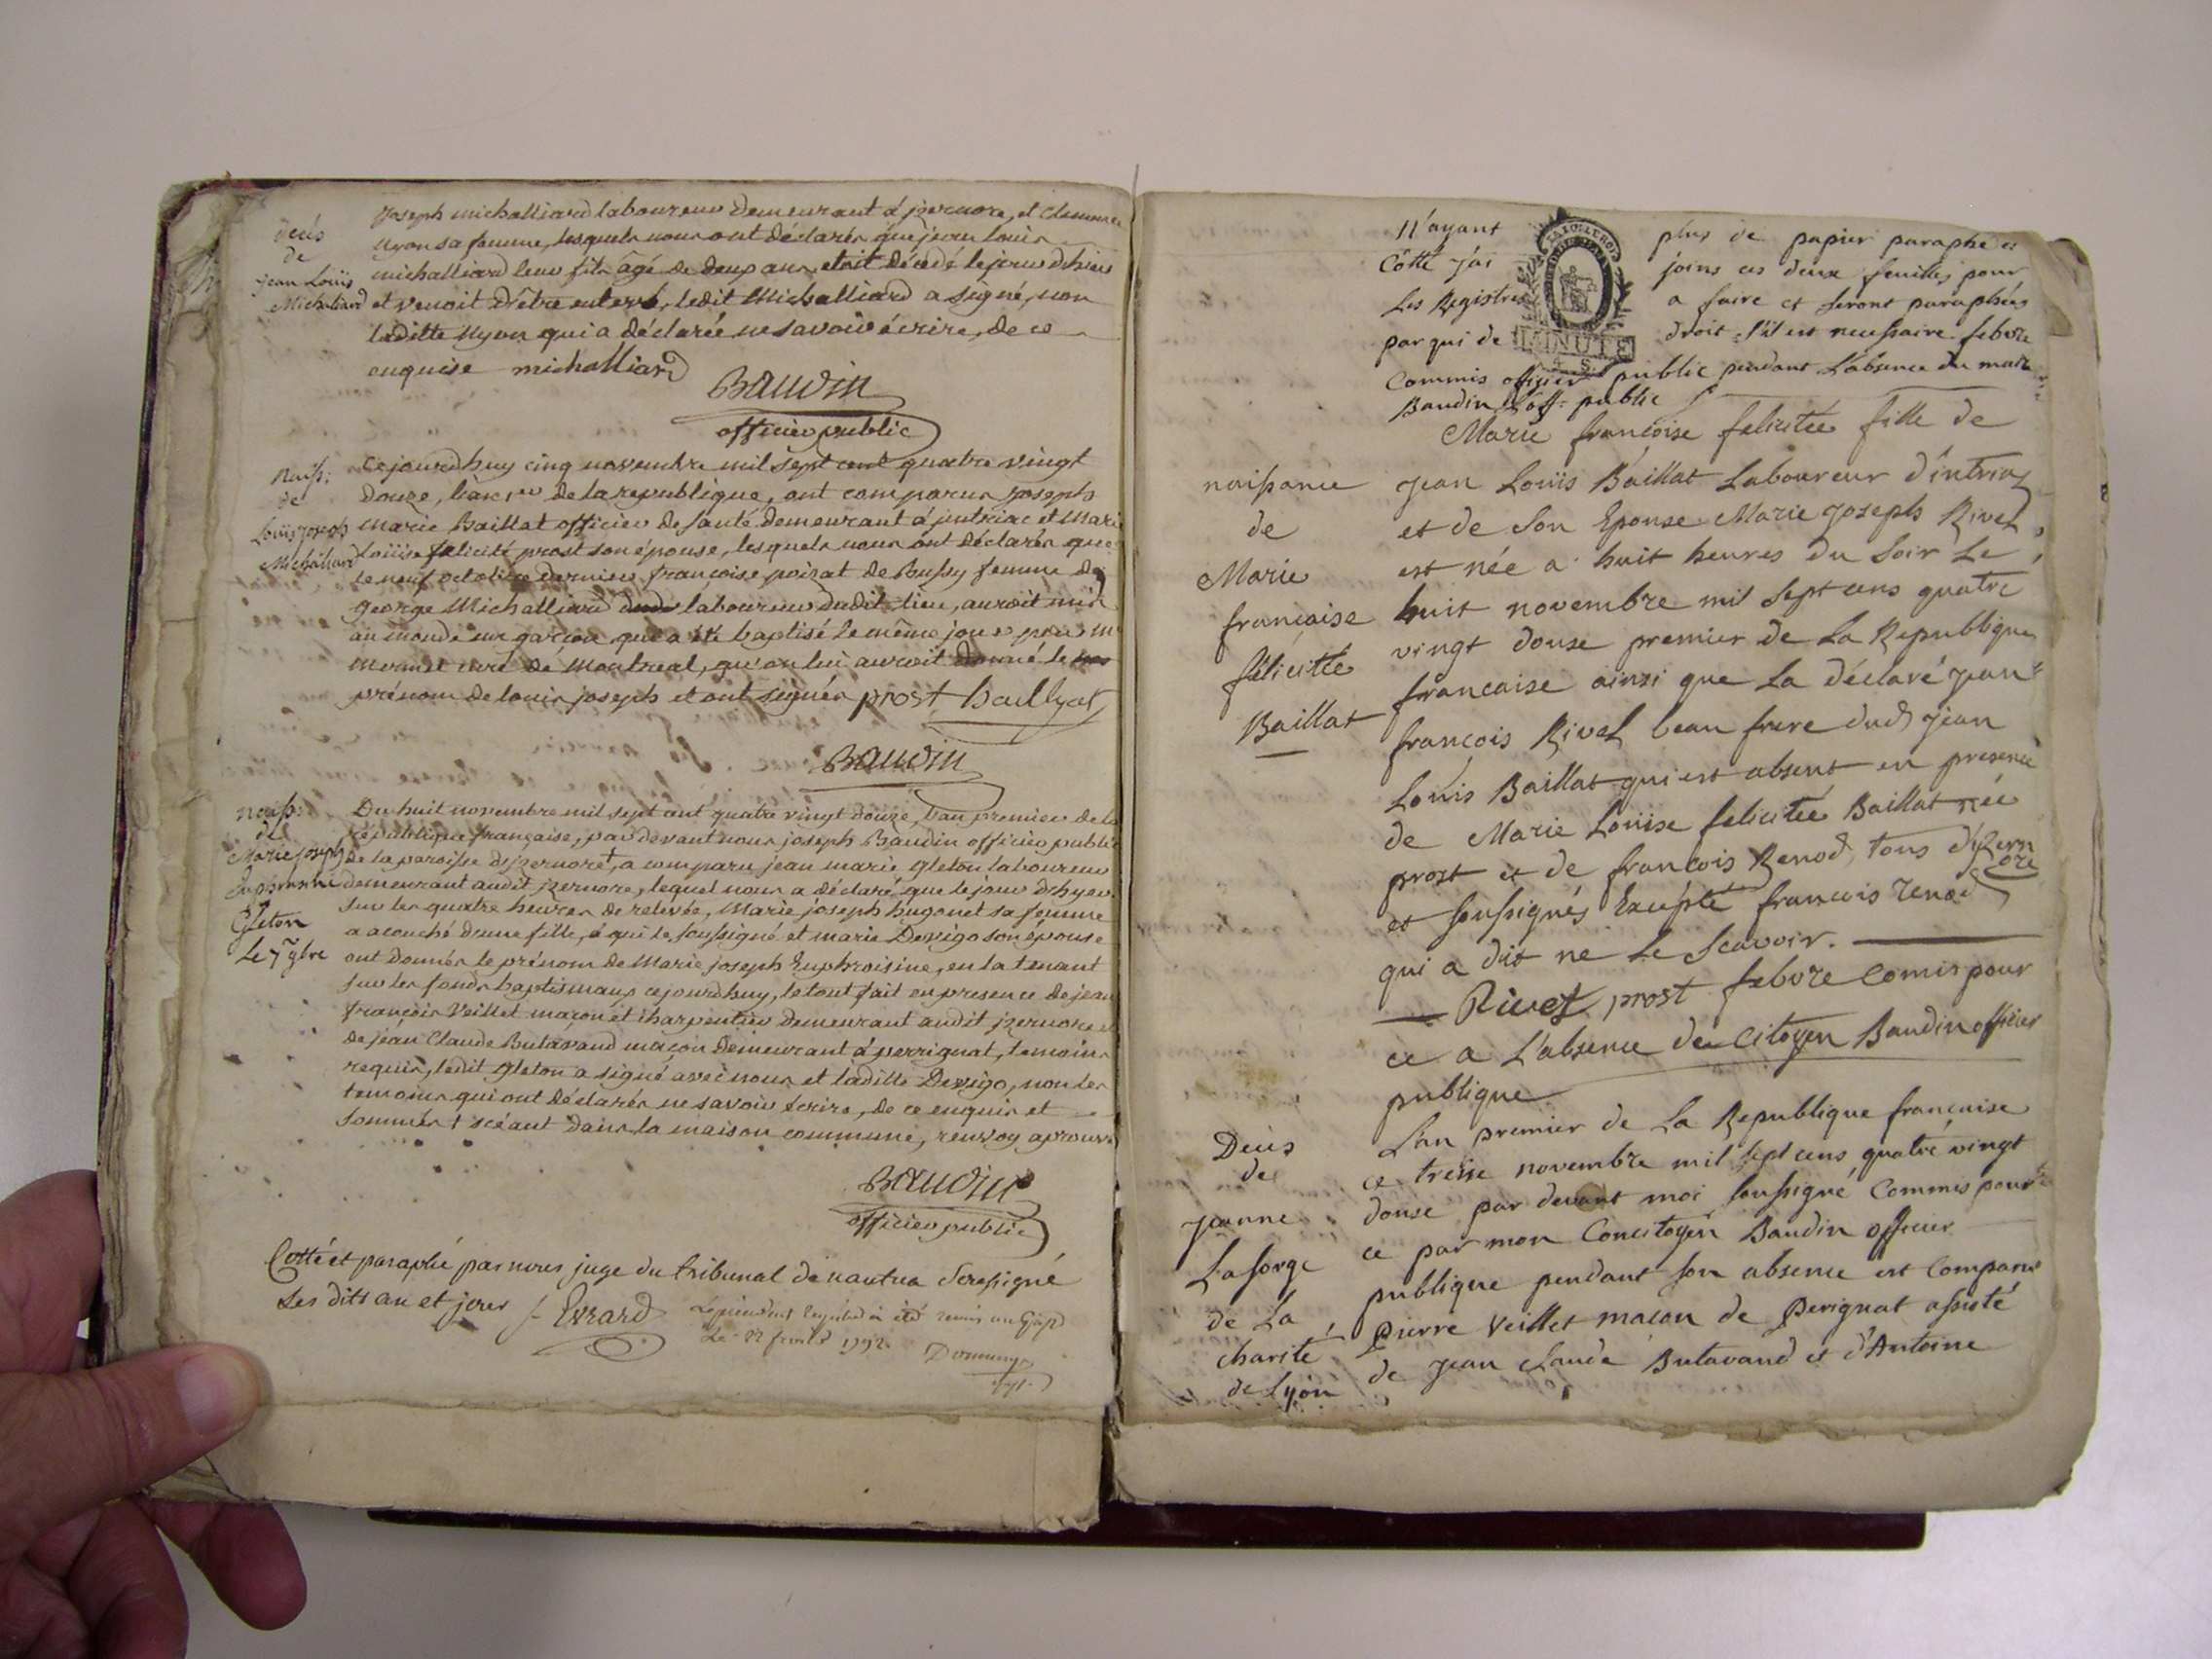 Decés
de
jean Louis
Michalliard
joseph michalliard laboureur demeurant à jzernore, et Clemence
nyon sa femme, lesquels nous ont déclarés que jean louis
michalliard leur fils âgé de deux ans, etoit décédé le jour d'hier
et venoit d'être enterré, ledit Michalliard a signé, non
laditte nyon qui a déclarée ne savoir écrire, de ce
enquise michalliard
Baudin
officier public
Naiss:
de
Louis joseph
Michalliard
Cejourdhuy cinq novembre mil sept cent quatre vingt
douze, l'an 1er de la republique, ont comparus joseph
marie Baillat officier de santé demeurant à jntriac et Marie
Loüise felicité prost son épouse, lesquels nous ont déclarés que
le neuf octobre dernier françoise poizat de Bussy femme de
george Michalliard laboureur dudit lieu, auroit mis
au monde un garçon, qui a été baptisé le même jour par m
curé de Montreal, qu'on lui auroit donné le
prénom de louis joseph et ont signés prost baillyat
Baudin
naiss:
de
Marie joseph
Euphrosine
Gleton
Le 7 9bre
Du huit novembre mil sept cent quatre vingt douze, l'an premier de la
république française, par devant nous joseph Baudin officier public
de la paroisse d'jzernore†, a comparu jean marie gleton laboureur
demeurant audit jzernore, lequel nous a déclaré que le jour d'hyer
sur les quatre heures de relevée, Marie joseph hugonet sa femme
a acouché d'une fille, à qui le soussigné et marie Devigo son épouse
ont donnés le prénom de Marie joseph Euphroisine, en la tenant
sur les fonds baptismaux cejourdhuy, le tout fait en presence de jean
françois Veillet maçon et charpentier demeurant audit jzernore et
de jean Claude Butavand maçon demeurant à perrignat, temoins
requis, ledit gleton a signé avec nous et laditte Devigo, non les
temoins qui ont déclarés ne savoir écrire, de ce enquis et
sommés † scéant dans la maison commune, renvoy aprouvé
Baudin
officier public
Cotté et paraphé par nous juge du tribunal de nantua Soussigné
Les dits an et jour Evrard
Le présent registre a été remis au
Le 22 1792
N'ayant plus de papier paraphé et
Côtté j'ai joins ces deux feuilles pour
Les Registres a faire et seront paraphées
par qui de droit s'il est necessaire febvre
MINUTE
4. S.
Commis officier public pendant L'absence du
Baudin off: public
naissance
de
Marie
francaise
félicitée
Baillat
Marie françoise felicitée fille de
jean Loüis Baillat Laboureur d'intriat
et de son Epouse Marie joseph Rivet,
est née a huit heures du soir Le
huit novembre mil sept cens quatre
vingt douse premier de La Republique
francaise ainsi que La déclaré jean
françois Rivet beau frere dud jean
Louis Baillat qui est absent en presence
de Marie Loüise felicitée Baillat née
prost et de françois Renod, tous d'jzern
ore
et soussignés Exéptée francois renod
qui a dit ne Le scavoir.
Rivet, prost febvre comis pour
ce a L'absence de Citoyen Baudin officier
publique
Décès
de
jeanne
Laforge
de La
charité
de Lyon
L'an premier de La Republique francaise
ce treise novembre mil sept cens quatre vingt
douse par devant moi soussigné Commis pour
ce par mon Concitoyen Baudin officier
publique pendant son absence est Comparu
pierre Veillet macon de perignat assisté
de jean Claude Butavand et d'Antoine